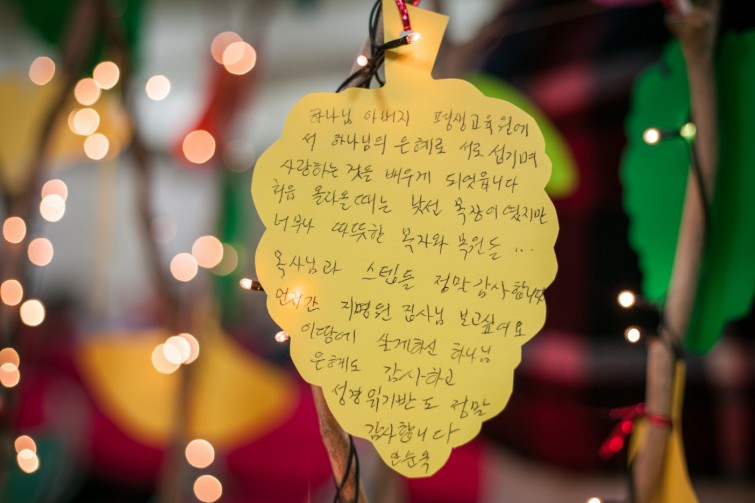 하나님 아버지 평생교육원에
서 하나님의 은혜로 서로 섬기며
사랑하는 것들 배우게 되엇읍니다
처음 올라올때는 낯선 목장이였지만
너무나 따뜻한 목자와 목원들 ...
목사님과 스텝들 정말 감사합니다
언니간 지명된 집사님 보고싶어요
이땅에 살게하신 하나님
은혜도 감사하고
성경읽기반도 정말
감사합니다
안순옥